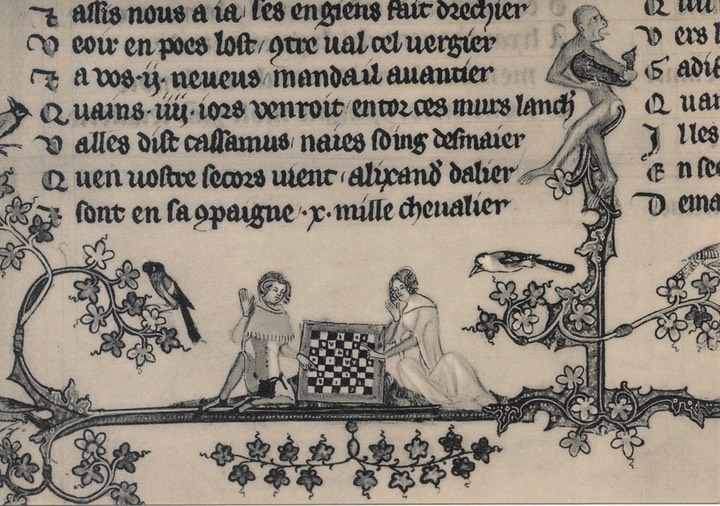 ⁊ assis nous a ia ses engiens fait drechier
Veoir en poes lost / ꝯtre ual cel uergier
⁊ a vos ·ij· neueus manda il auantier
Quains ·iiij· iors venroit entor ces murs lanch'
Valles dist cassamus / naies soing desmaier
Quen uostre secors uient / alixand' dalier
⁊ sont en sa ꝯpaigne ·x· mille cheualier
Vers
Illes
En